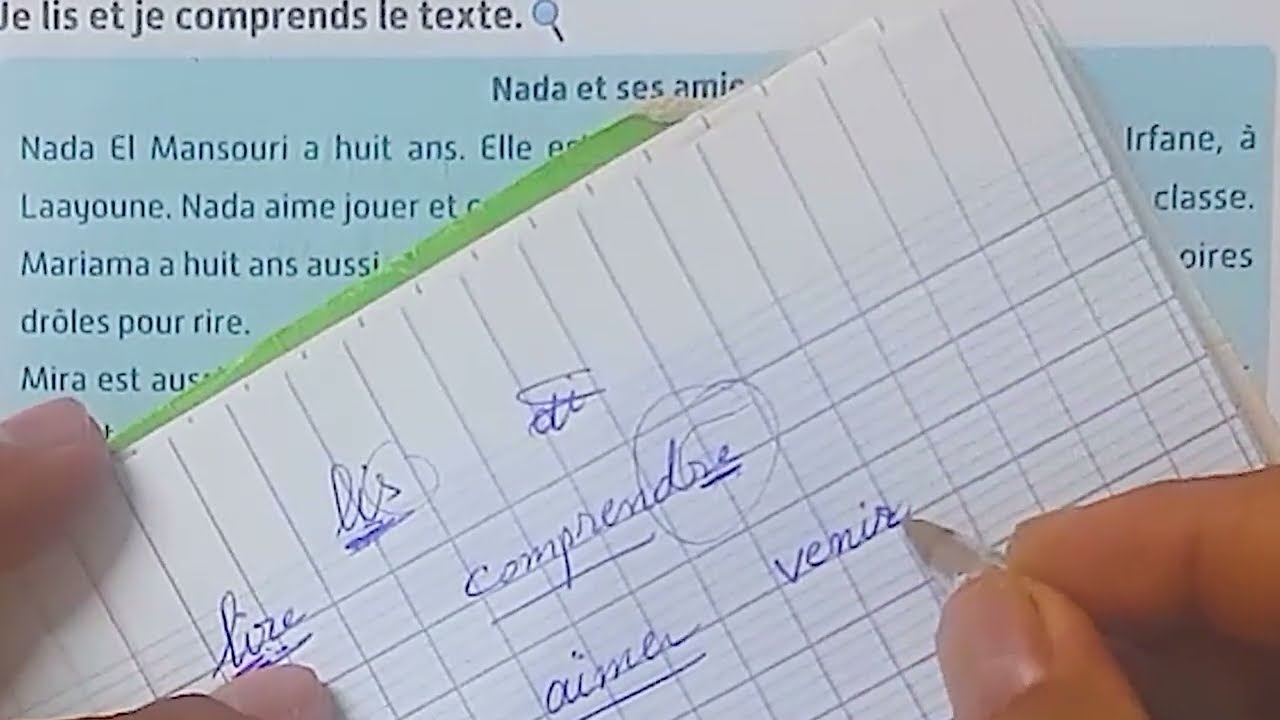 Je lis et je comprends le texte.
Nada et ses amie
Nada El Mansouri a huit ans. Elle
Irfane, à
Laayoune. Nada aime jouer et
classe.
Mariama a huit ans aussi
oires
drôles pour rire.
Mira est aus
lis
comprendre
venir
lire
aimer